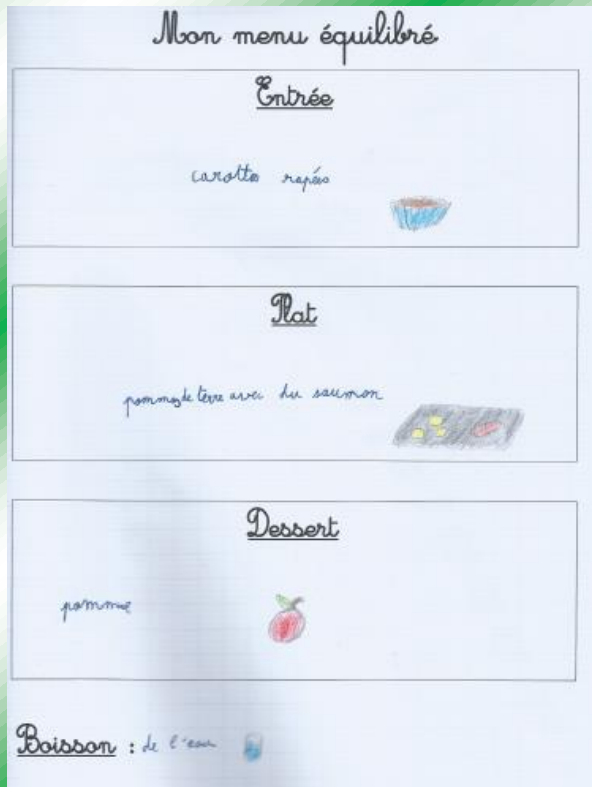 Mon menu équilibré
Entrée
carottes rapées
Plat
pommes de terre avec du saumon
Dessert
pomme
Boisson : de l'eau